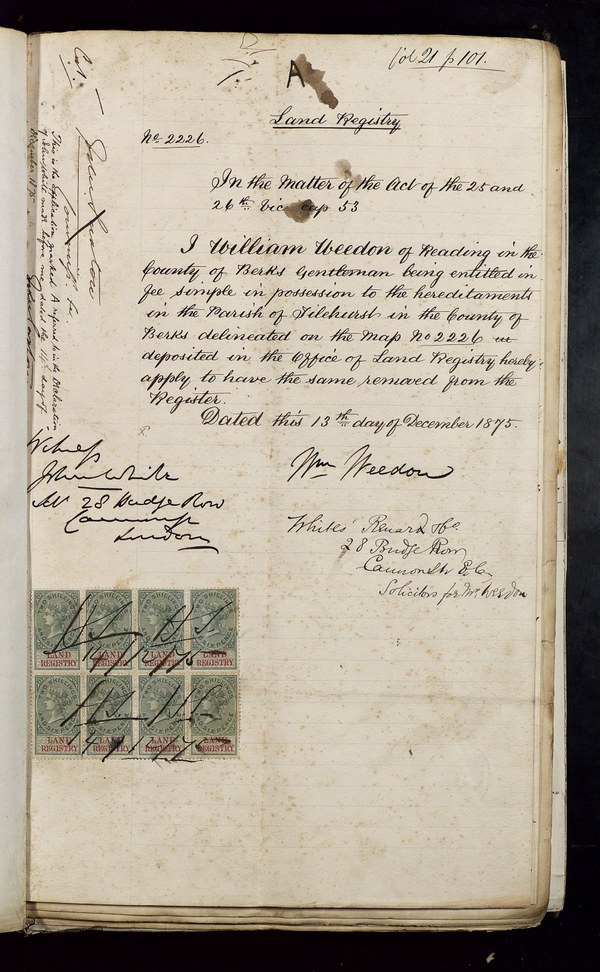 A
fol 21 p 101.
Land Registry
No 2226.
In the Matter of the Act of the 25 and
26th Vic cap 53
I William Weedon of Reading in the
County of Berks Gentleman being entitled in
fee simple in possession to the hereditaments
in the Parish of Tilehurst in the County of
Berks delineated on the Map No 2226
deposited in the Office of Land Registry hereby
apply to have the same removed from the
Register.
Dated this 13th day of December 1875.
Wm Weedon
Witness
John White
28 Budge Row
Cannon St
London
Whites Renard & Co
28 Budge Row
Cannon St E.C.
Solicitors for Mr Weedon
This is the application marked A referred to in the Declaration
of John White made before me dated this day of
December 1875
LAND REGISTRY
LAND REGISTRY
LAND REGISTRY
LAND REGISTRY
LAND REGISTRY
LAND REGISTRY
LAND REGISTRY
LAND REGISTRY